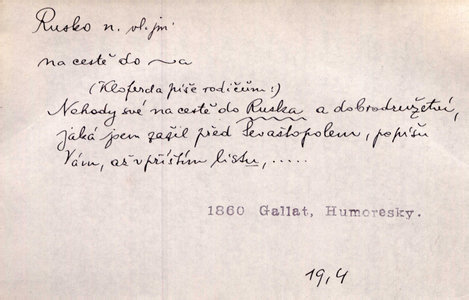 Rusko n. vl. jm.
na cestě do ~a
(Kloferda píše rodičům!)
Nehody své na cestě do Ruska a dobrodružství,
jaká jsem zažil před Sevastopolem, popíšu
Vám, až v příštím listu, .....
1860 Gallat, Humoresky.
19,4